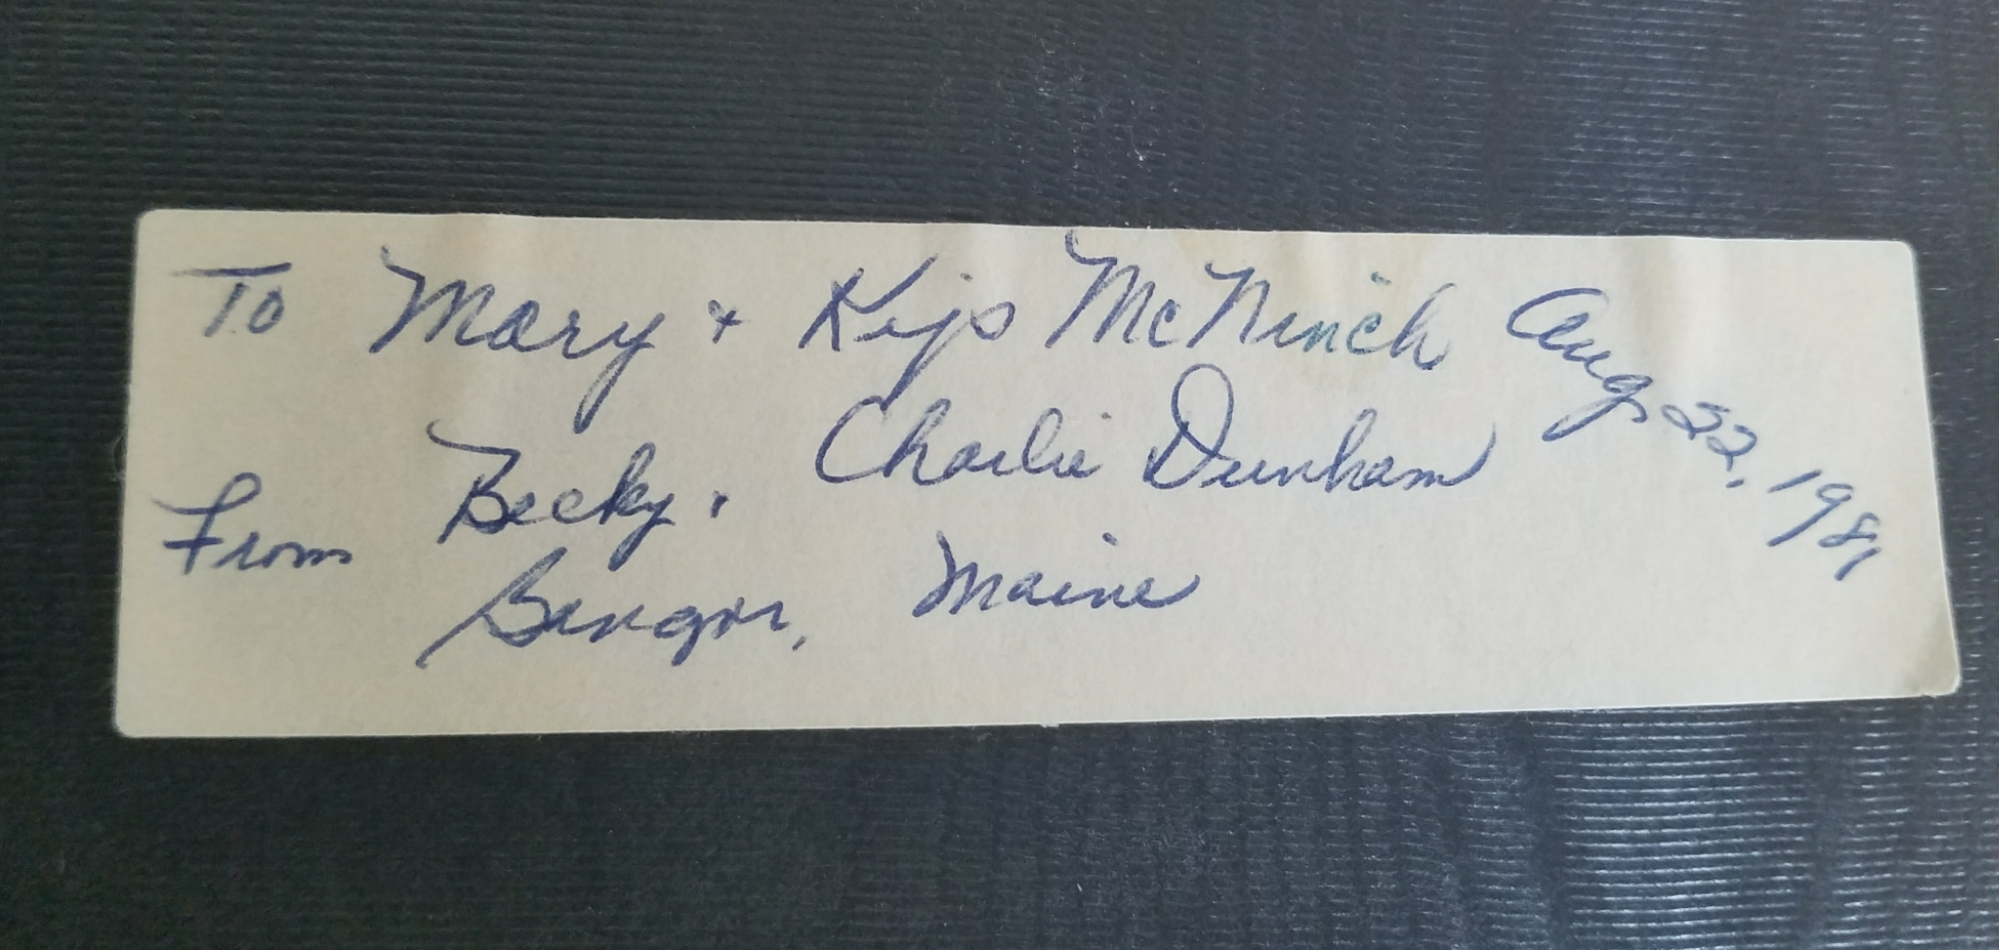 To Mary + Kip McNinch Aug. 22, 1981
From Becky + Charlie Dunham
Bangor, Maine